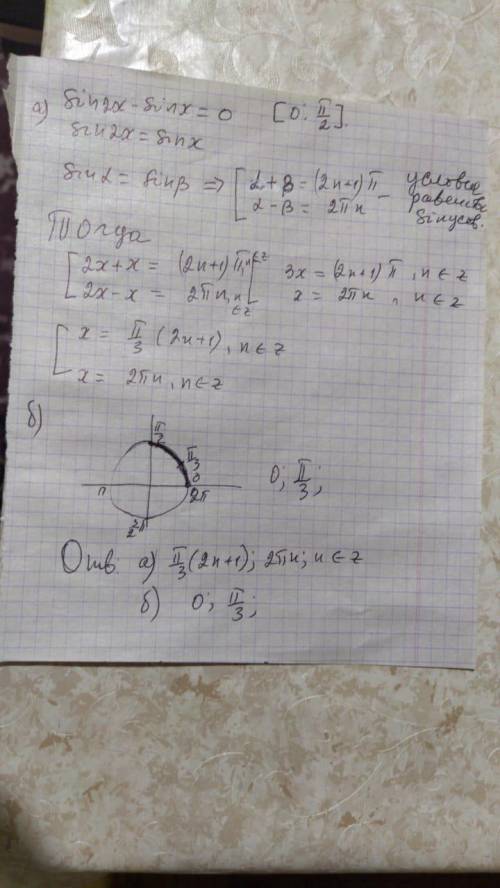 а) sin2x - sinx = 0 [0; π/2].
sin2x = sinx
sinα = sinβ => [ α + β = (2n+1)π - условие
α - β = 2πn равенства
синусов.
Тогда
[ 2x + x = (2n+1)π, n∈z [ 3x = (2n+1)π, n∈z
2x - x = 2πn, n∈z x = 2πn, n∈z
[ x = π/3 (2n+1), n∈z
x = 2πn, n∈z
б)
π/2
π/3
0
π 2π 0; π/3;
3/2π
Отв. а) π/3(2n+1); 2πn; n∈z
б) 0; π/3;